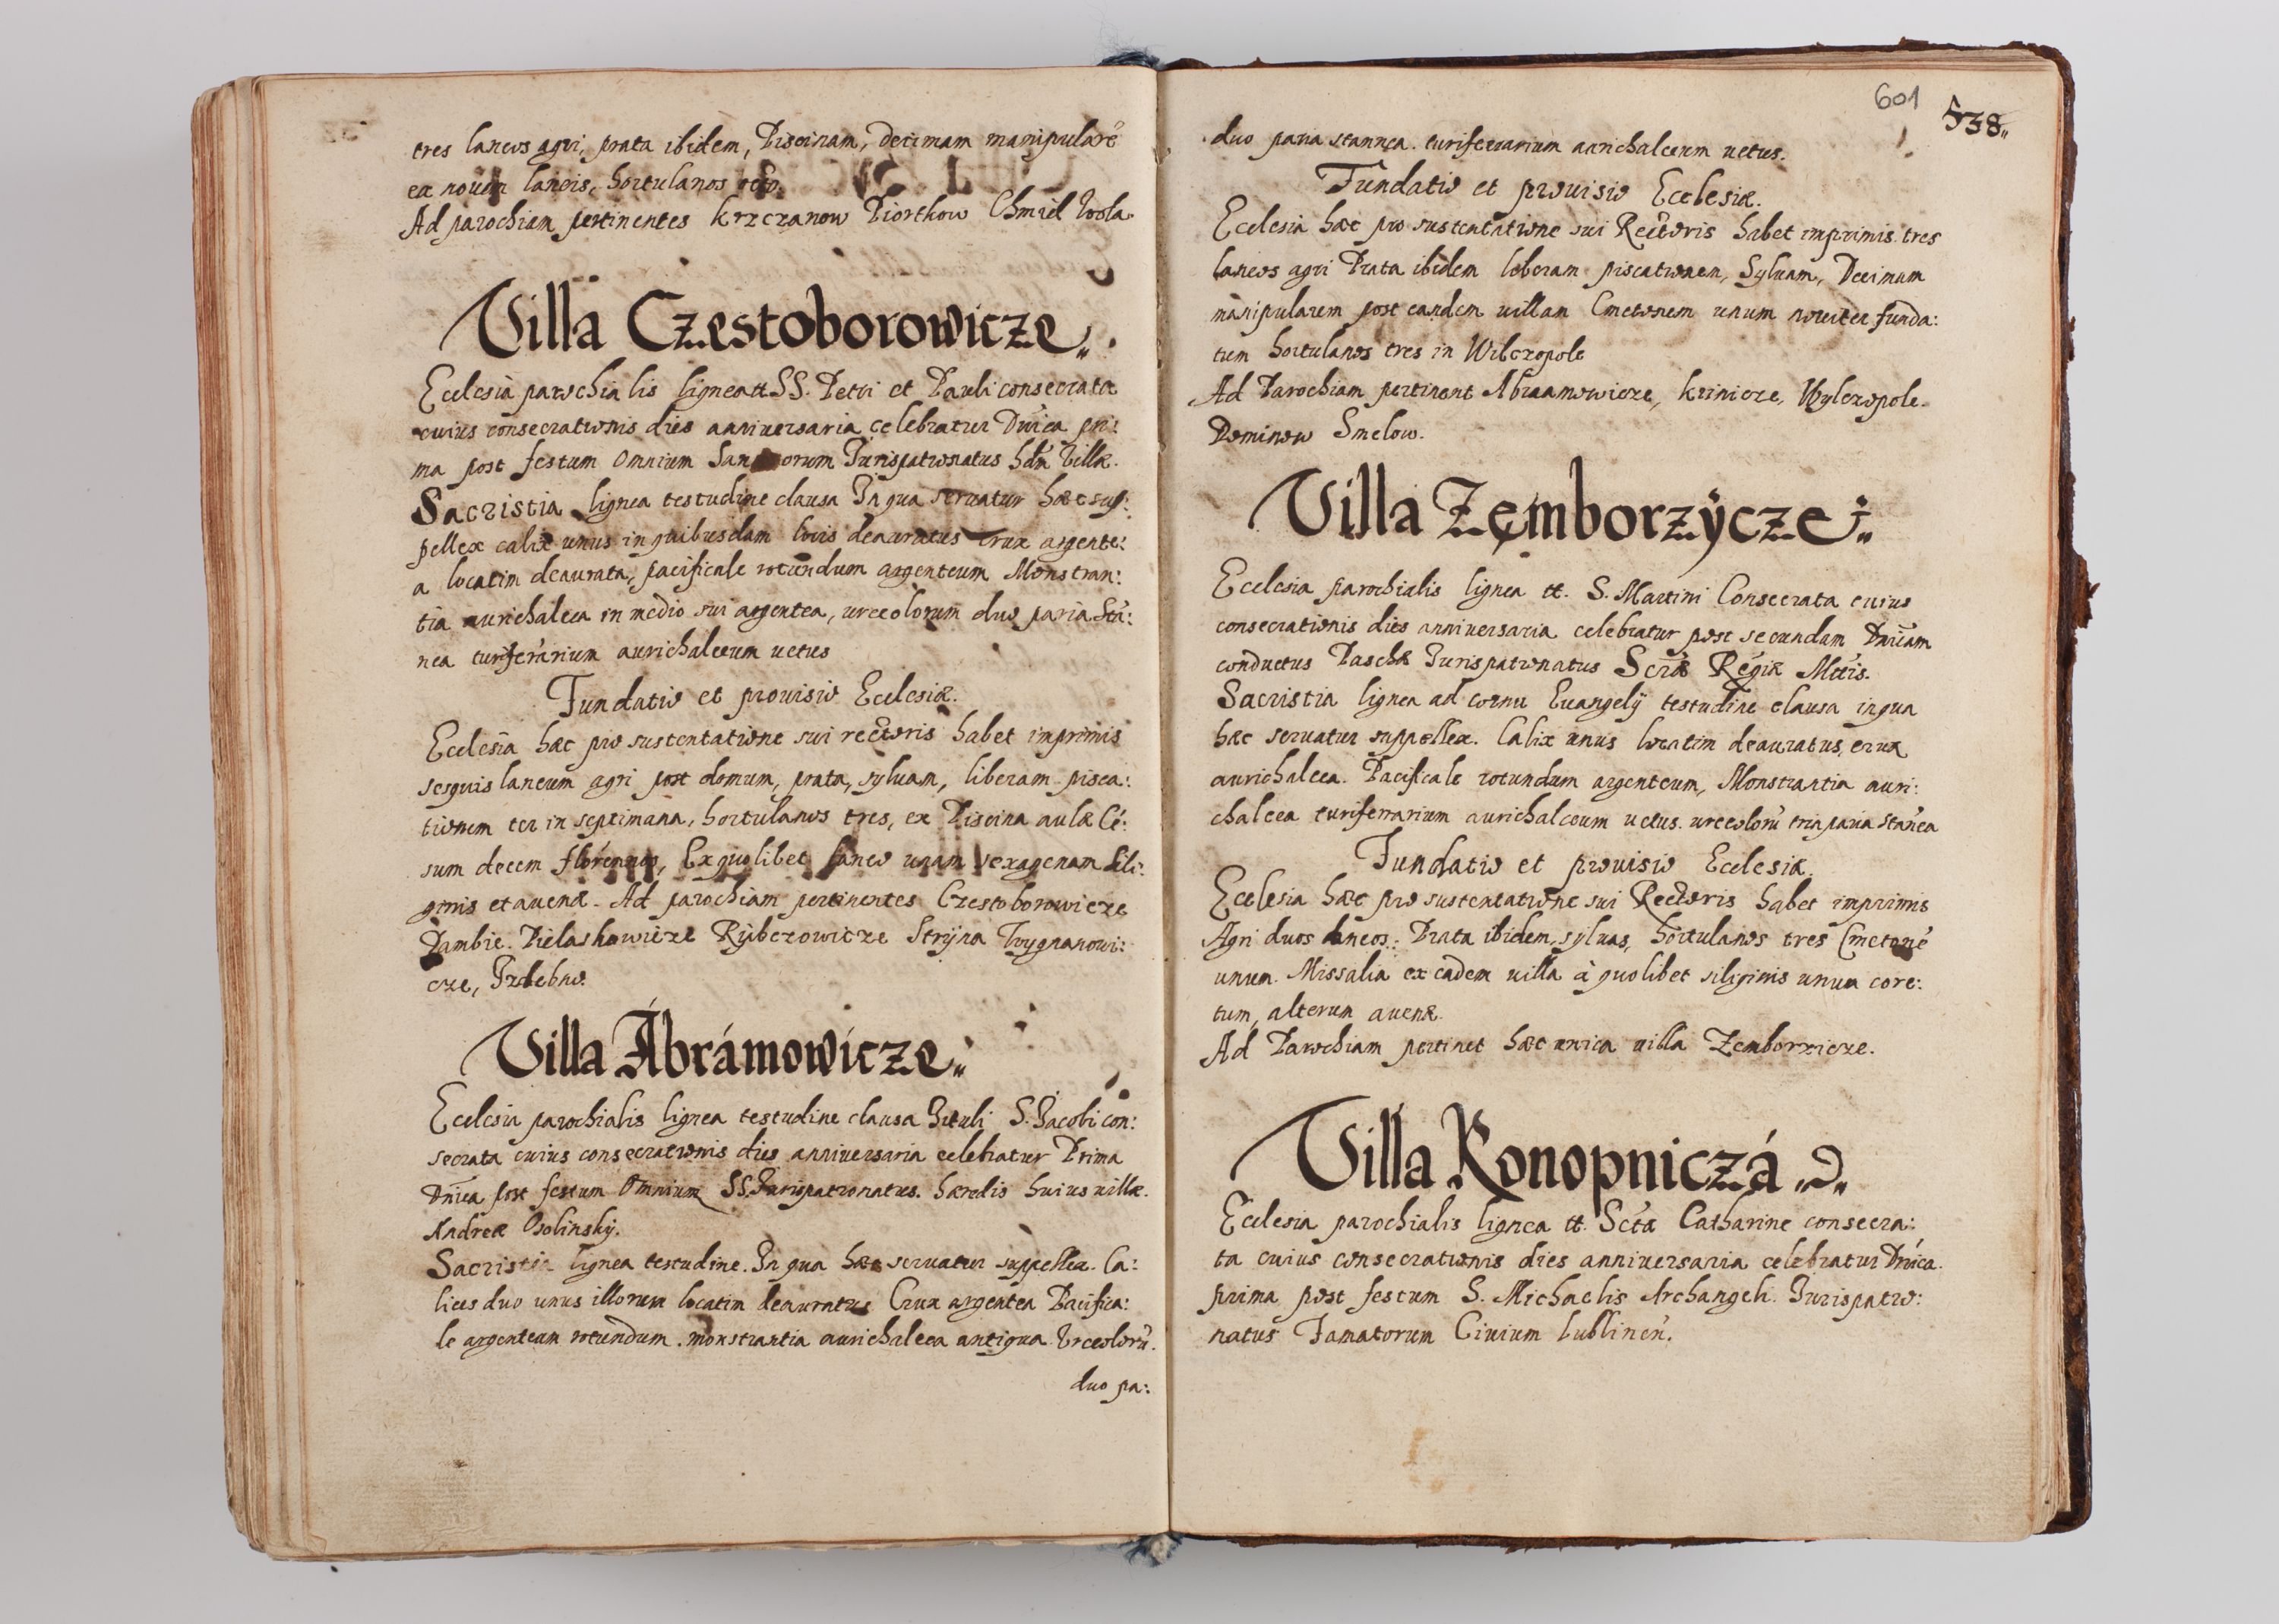 tres laneos agri, prata ibidem, Piscinam, decimam manipularē
ex nouem laneis, hortulanos octo.
Ad parochiam pertinentes Krzczanow Piortkow Chmiel Wola.
Villa Częstoborowicze
Ecclesia parochialis lignea tt SS. Petri et Pauli consecrata
cuius consecrationis dies anniuersaria celebratur Dnica pri:
ma post festum Omnium Sanctorum Jurispatronatus hdm Villæ.
Sacristia lignea testudine clausa In qua seruatur hæc sup:
pellex calix unus in quibusdam locis deauratus Crux argente:
a locatim deaurata, pacificale rotundum argenteum Monstran:
tia aurichalcea in medio sui argentea, urceolorum duo paria Stā:
nea turiferarium aurichalceum uetus
Fundatio et prouisio Ecclesiæ.
Ecclesia hæc pro sustentatione sui rectoris habet imprimis
sesquis laneum agri post domum, prata, syluam, liberam pisca:
tionem ter in septimana, hortulanos tres, ex Piscina aulæ Cē:
sum decem florennos, Ex quolibet laneo unam sexagenam Sili:
ginis et auenæ. Ad parochiam pertinentes Czestoborowicze
Dambie. Pielaskowicze Rÿbczowicze Strÿna Wygnanowi:
cze, Izdebno.
Villa Ábrámowícze
Ecclesia parochialis lignea testudine clausa Tituli S. Jacobi con:
secrata cuius consecrationis dies anniuersaria celebratur Prima
Dnica post festum Omnium SS. Jurispatronatus. hæredis huius uillæ.
Andreæ Osolinskÿ.
Sacristia lignea testudine. In qua hæc seruatur suppellex. Ca:
lices duo unus illorum locatim deauratus Crux argentea Pacifica:
le argenteum rotundum. monstrantia aurichalcea antiqua Urceolorū.
duo pa:
601
538
duo paria stannea. turiferrarium aurichalceum uetus.
Fundatio et prouisio Ecclesiæ.
Ecclesia hæc pro sustentatione sui Rectoris habet imprimis tres
laneos agri Prata ibidem liberam piscationem, Syluam, Decimam
manipularem post eandem uillam Cmetonem unum nouiter funda:
tum hortulanos tres in Wilczopole
Ad Parochiam pertinent Abraamowicze, Krinicze, Wylczopole.
Dominow Smelow.
Villa Zęmborzÿcze
Ecclesia parochialis lignea tt. S. Martini Consecrata cuius
consecrationis dies anniuersaria celebratur post secundam Dnicam
conductus Paschæ Jurispatronatus Scræ Regiæ Mttis.
Sacristia lignea ad cornu Euangelÿ testudine clausa in qua
hæc seruatur suppellex. Calix unus locatim deauratus, crux
aurichalcea. Pacificale rotundum argenteum, Monstrantia auri:
chalcea turiferrarium aurichalceum uetus. urceolorū tria paria stānea
Fundatio et prouisio Ecclesiæ.
Ecclesia hæc pro sustentatione sui Rectoris habet imprimis
Agri duos laneos: Prata ibidem, syluas, hortulanos tres Cmetonē
unum. Missalia ex eadem uilla à quolibet siliginis unum core:
tum, alterum auenæ.
Ad Parochiam pertinet hæc unica uilla Zemborzicze.
Villa Konopniczá
Ecclesia parochialis lignea tt. Sctæ Catharine consecra:
ta cuius consecrationis dies anniuersaria celebratur Dnica.
prima post festum S. Michaelis Archangeli. Jurispatro:
natus Famatorum Ciuium Lublineñ.